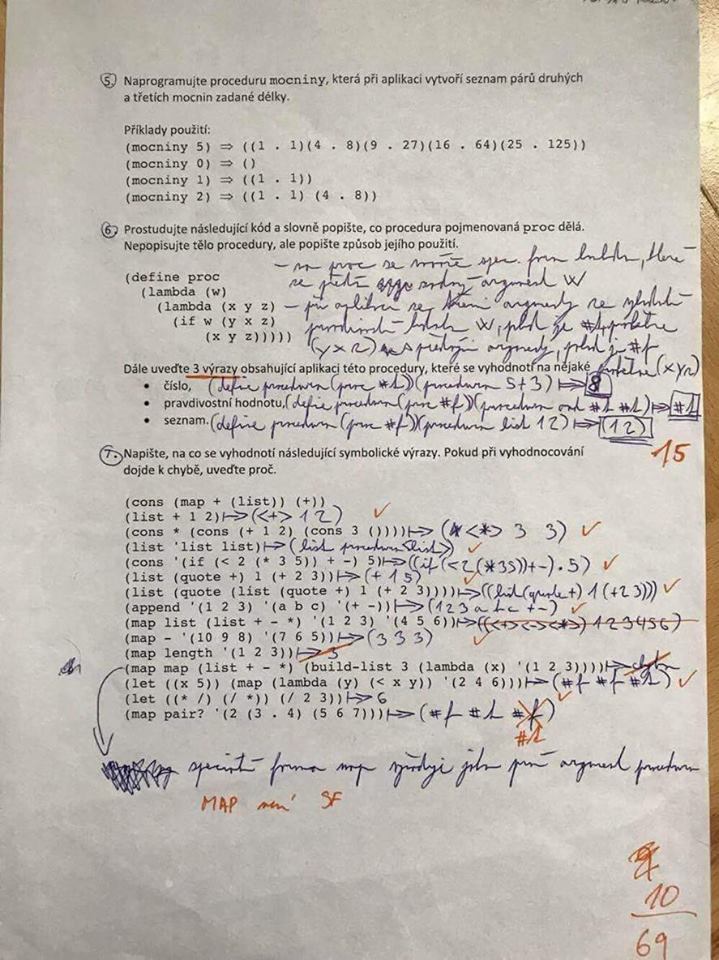 5. Naprogramujte proceduru mocniny, která při aplikaci vytvoří seznam párů druhých
a třetích mocnin zadané délky.
Příklady použití:
(mocniny 5) ⇒ ((1 . 1)(4 . 8)(9 . 27)(16 . 64)(25 . 125))
(mocniny 0) ⇒ ()
(mocniny 1) ⇒ ((1 . 1))
(mocniny 2) ⇒ ((1 . 1) (4 . 8))
6. Prostudujte následující kód a slovně popište, co procedura pojmenovaná proc dělá.
Nepopisujte tělo procedury, ale popište způsob jejího použití.
- na proc se spec. forma lambda, které
se předá argument w
(define proc
(lambda (w)
(lambda (x y z)
- při aplikaci se argumenty se
(if w (y x z)
w, pokud je #t
(x y z)))))
(y x z) argumenty, pokud je #f
(x y z)
Dále uveďte 3 výrazy obsahující aplikaci této procedury, které se vyhodnotí na nějaké
• číslo, (define procedura (proc #t)) (procedura 5 + 3) ⊢> 8
• pravdivostní hodnotu, (define procedura (proc #f)) (procedura and #t #t) ⊢> #t
• seznam. (define procedura (proc #f)) (procedura list 1 2) ⊢> (1 2)
15
7. Napište, na co se vyhodnotí následující symbolické výrazy. Pokud při vyhodnocování
dojde k chybě, uveďte proč.
(cons (map + (list)) (+))
(list + 1 2) ⊢> (<+> 1 2) ✓
(cons * (cons (+ 1 2) (cons 3 ()))) ⊢> (<*> 3 3) ✓
(list 'list list) ⊢> (list procedura <list>) ✓
(cons '(if (< 2 (* 3 5)) + -) 5) ⊢> ((if (< 2 (* 3 5)) + -) . 5) ✓
(list (quote +) 1 (+ 2 3)) ⊢> (+ 1 5) ✓
(list (quote (list (quote +) 1 (+ 2 3)))) ⊢> ((list (quote +) 1 (+ 2 3))) ✓
(append '(1 2 3) '(a b c) '(+ -)) ⊢> (1 2 3 a b c + -) ✓
(map list (list + - *) '(1 2 3) '(4 5 6)) ⊢> ((<+> <-> <*>) 1 2 3 4 5 6)
(map - '(10 9 8) '(7 6 5)) ⊢> (3 3 3) ✓
(map length '(1 2 3)) ⊢> 3
(map map (list + - *) (build-list 3 (lambda (x) '(1 2 3)))) ⊢> chyba
(let ((x 5)) (map (lambda (y) (< x y)) '(2 4 6))) ⊢> (#f #f #t) ✓
(let ((* /) (/ *)) (/ 2 3)) ⊢> 6 ✓
(map pair? '(2 (3 . 4) (5 6 7))) ⊢> (#f #t #f)
#t
speciální forma map jako první argument proceduru
MAP není SF
10
69